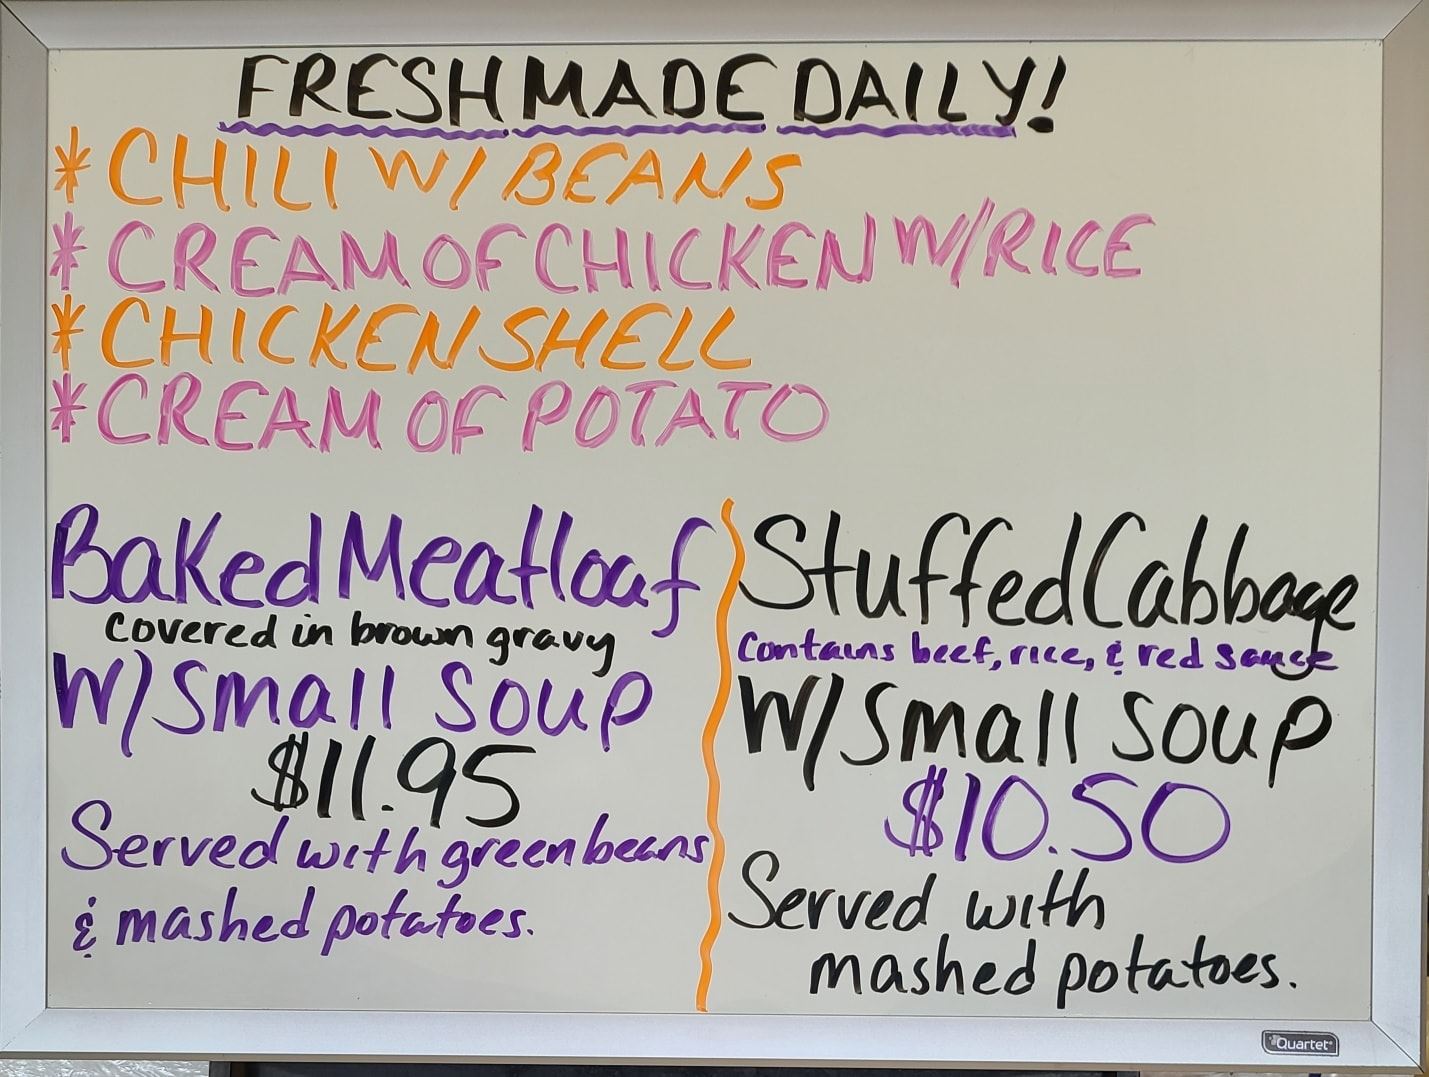 FRESH MADE DAILY!
* CHILI W/ BEANS
* CREAM OF CHICKEN W/RICE
* CHICKEN SHELL
* CREAM OF POTATO
Baked Meatloaf
covered in brown gravy
W/Small Soup
$11.95
Served with green beans
& mashed potatoes.
Stuffed Cabbage
contains beef, rice, & red sauce
W/Small Soup
$10.50
Served with
mashed potatoes.
Quartet